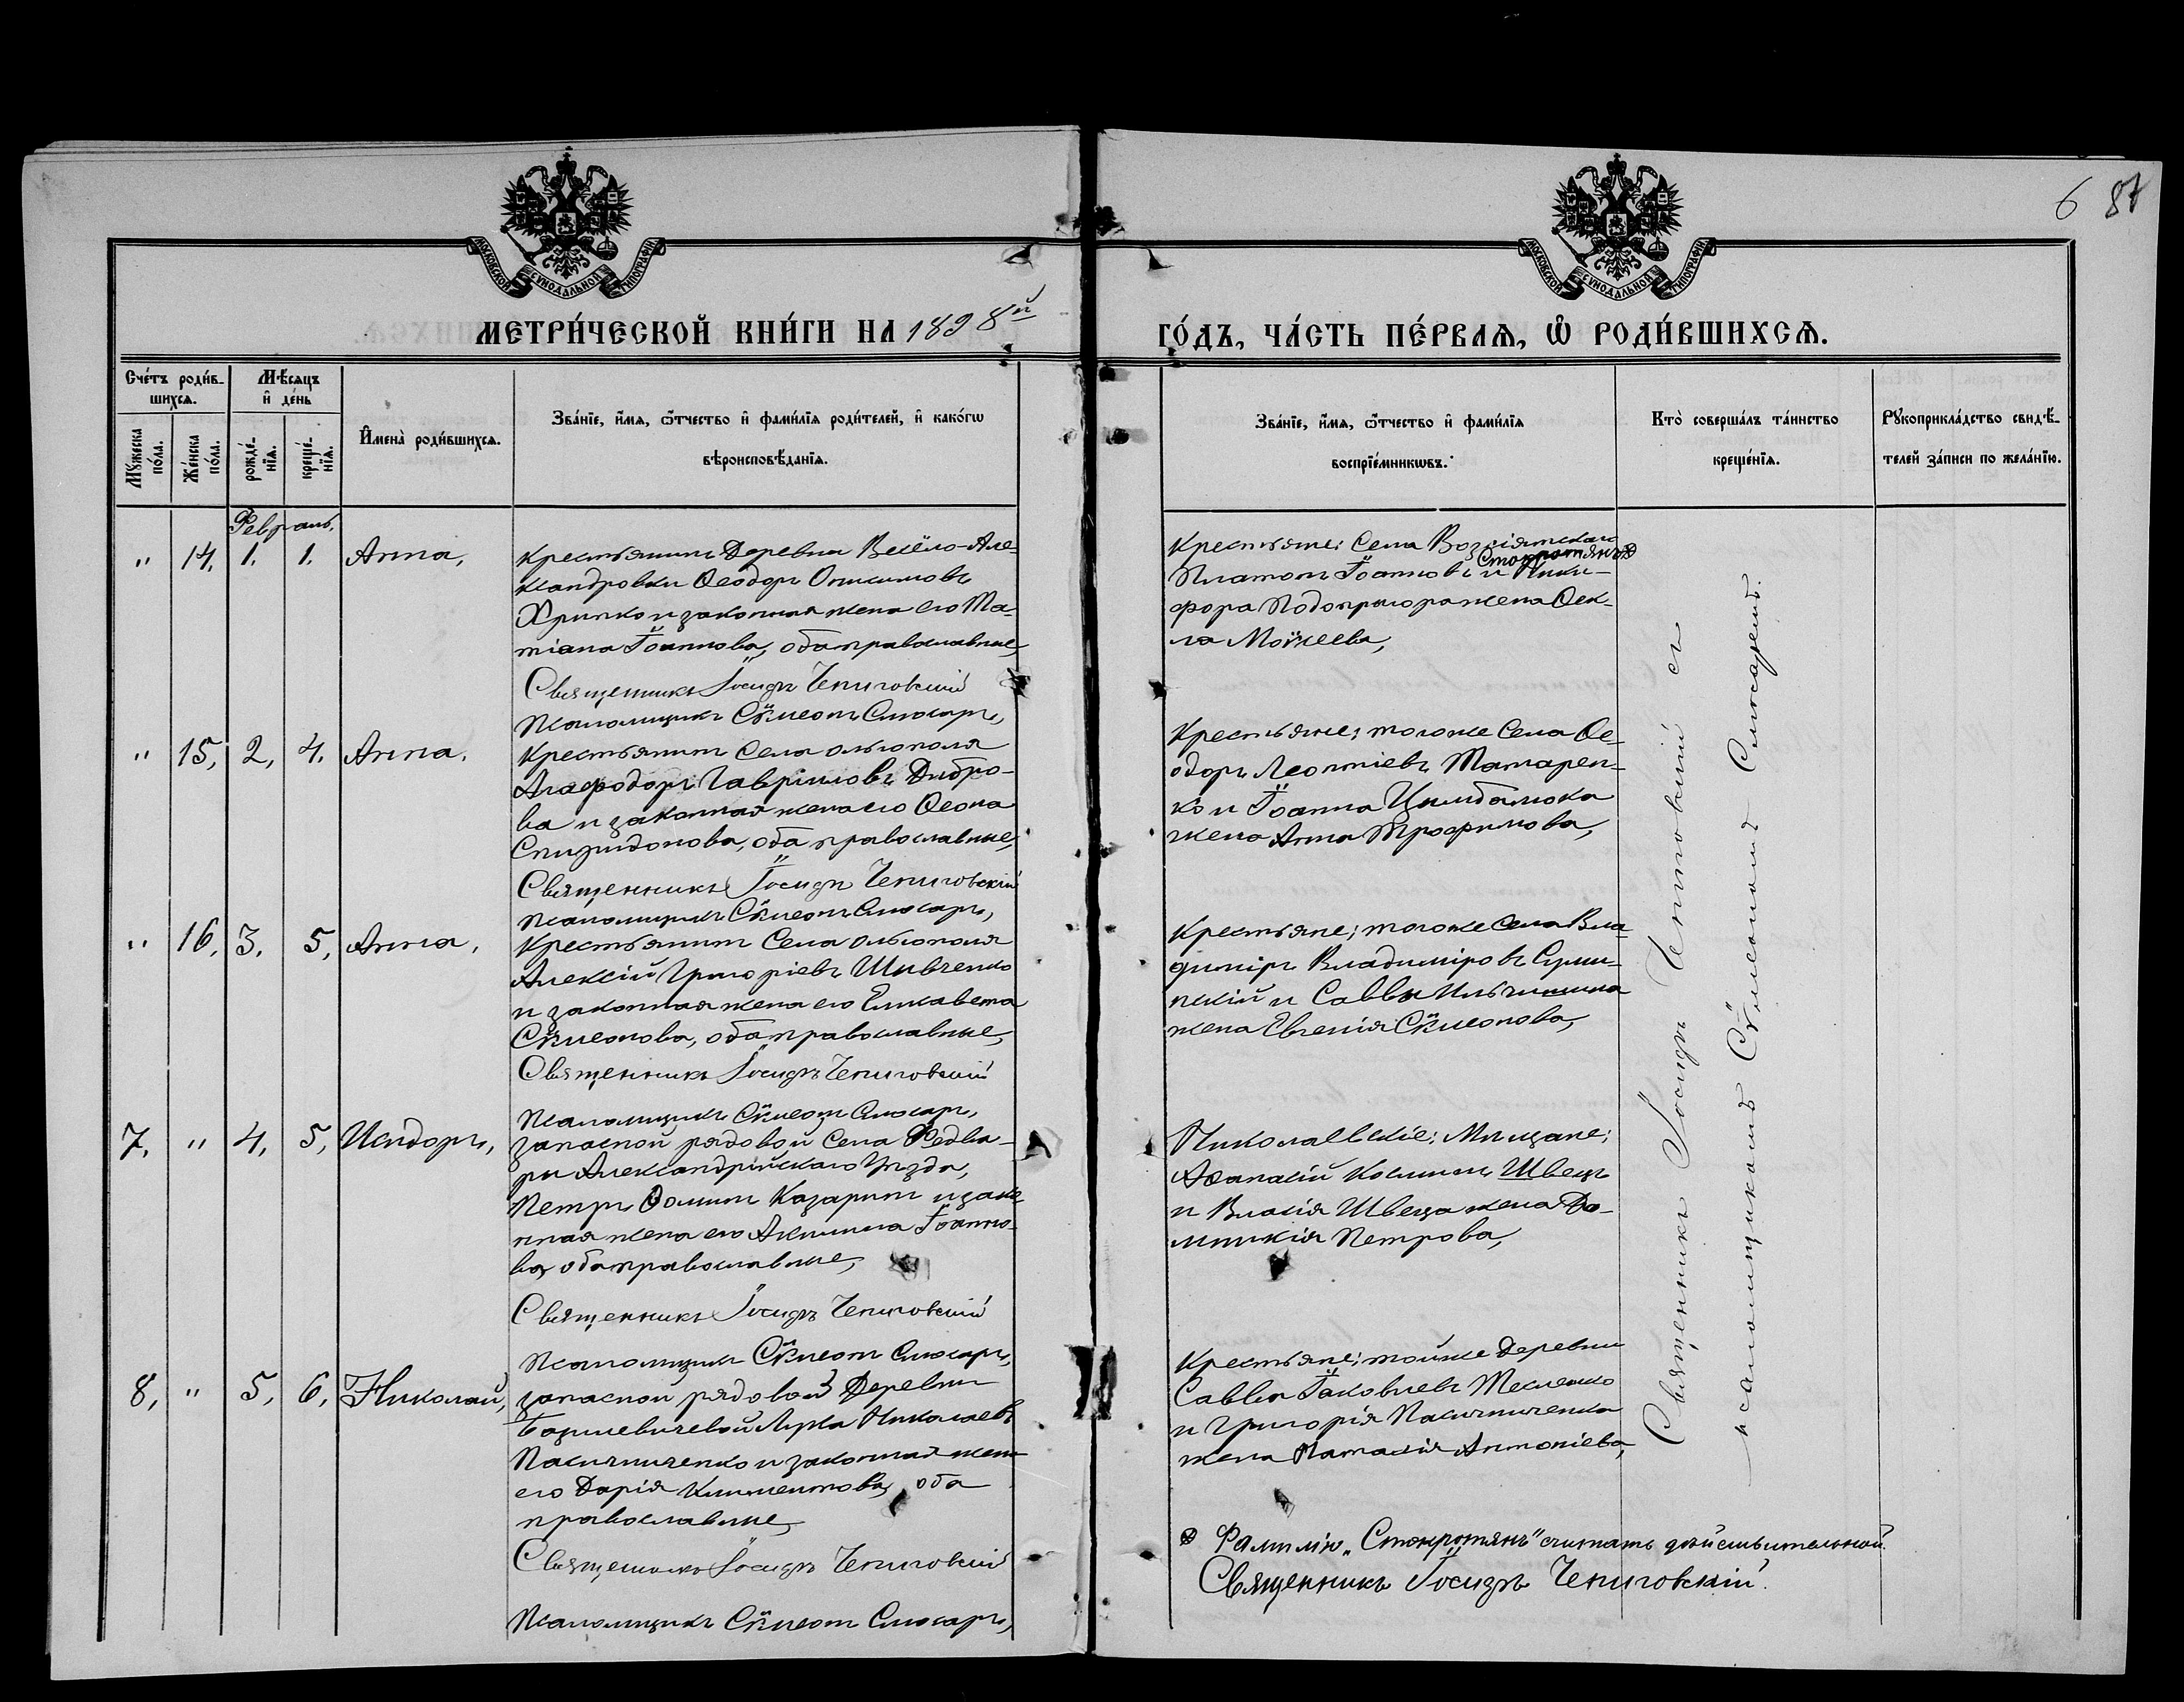 6 87
МОСКОВСКОЙ СѴНОДАЛЬНОЙ ТИПОГРАФИ
МОСКОВСКОЙ СѴНОДАЛЬНОЙ ТИПОГРАФИ
МЕТРИ́ЧЕСКОЙ КНИ́ГИ НА 1898й
ГО́ДЪ, ЧА́СТЬ ПЕ́РВАѦ, Ѡ҆ РОДИ́ВШИХСѦ.
Сче́тъ роди́в-
шихсѧ.
Мѣ́сѧцъ
и҆ де́нь
Мꙋ́жеска
по́ла.
Же́нска
по́ла.
рожде́-
нїѧ.
креще́-
нїѧ.
И҆мена̀ роди́вшихсѧ.
Зва́нїе, и҆́мѧ, ѻ҆́тчество и҆ фами́лїѧ роди́телей, и҆ како́гѡ
вѣроисповѣ́данїѧ.
Зва́нїе, и҆́мѧ, ѻ҆́тчество и҆ фами́лїѧ
воспрїе́мникѡвъ.
Кто̀ соверша́лъ та́инство
креще́нїѧ.
Рꙋкоприкла́дство свидѣ́-
телей за́писи по жела́нїю.
Февраль.
" 14, 1. 1. Анна,
Крестьянинъ Деревни Весёло-Але-
ксандровки Ѳеодоръ Онисимовъ
Хрипко и законная жена его Та-
тіана Іоаннова, оба православные,
Священникъ Іосифъ Чепиговскій
Псаломщикъ Сѵмеонъ Слюсарь,
Крестьяне: Села Возсіятскаго
Стокротянъ ⊗
Платонъ Іоанновъ и Ники-
фора Подопригора жена Ѳек-
ла Моисеева,
" 15, 2, 4. Анна.
Крестьянинъ Села Ольгополя
Агаѳодоръ Гавріиловъ Дибро-
ва и законная жена его Ѳеона
Спиридонова, оба православные,
Священникъ Іосифъ Чепиговскій
Псаломщикъ Сѵмеонъ Слюсарь,
Крестьяне; тогоже Села Ѳе-
одоръ Леонтіевъ Татарен-
ко и Іоанна Цымбалюка
жена Анна Трофимова,
" 16, 3. 5, Анна,
Крестьянинъ Села Ольгополя
Алексій Григоріевъ Шивченко
и законная жена его Елисавета
Сѵмеонова, оба православные,
Священникъ Іосифъ Чепиговскій
Псаломщикъ Сѵмеонъ Слюсарь,
Крестьяне; тогоже Села Вла-
диміръ Владиміровъ
и Саввы
жена Евгенія Сѵмеонова,
7, " 4, 5, Исидоръ,
запасной рядовой Села Федва-
ри Александрійскаго Уѣзда,
Петръ Ѳоминъ Казаринъ и зако-
нная жена его Акилина Іоанно-
ва, оба православные,
Священникъ Іосифъ Чепиговскій
Псаломщикъ Сѵмеонъ Слюсарь,
Николаевскіе: Мѣщане:
Аѳанасій Косминъ Швецъ
и Власія Швеца жена До-
мникія Петрова,
8, " 5, 6, Николай,
запасной рядовой Деревни
Базилевичевой Лука Николаевъ
Пасичниченко и законная жена
его Дарія Климентова, оба
православные,
Священникъ Іосифъ Чепиговскій
Псаломщикъ Сѵмеонъ Слюсарь,
Крестьяне; тойже Деревни
Савва Іаковлевъ Тесленко
и Григорія Пасичниченка
жена Наталія Антоніева,
Священникъ Іосифъ Чепиговскій съ
псаломщикомъ Сѵмеономъ Слюсаремъ.
⊗ Фамилію „Стокротянъ" считать дѣйствительной.
Священникъ Іосифъ Чепиговскій.